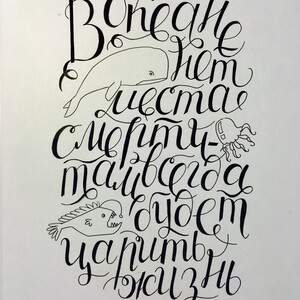 В океане
нет
места
смерти-
там всегда
будет
царить
жизнь